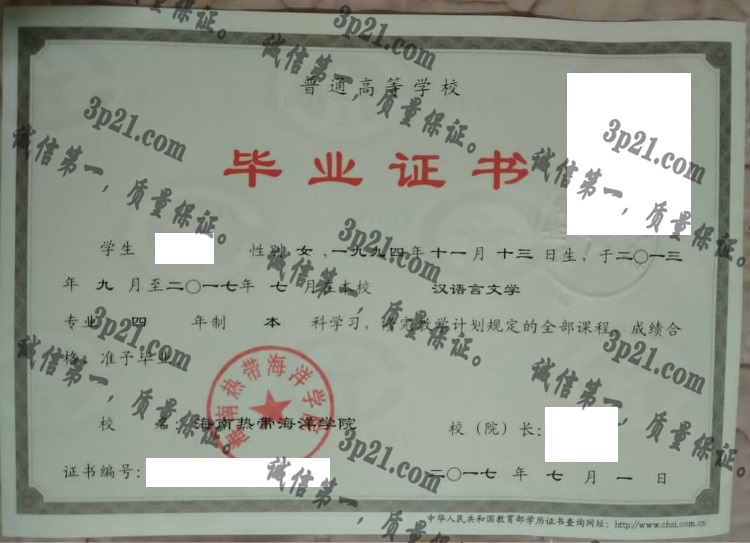 普通高等学校
毕业证书
学生 性别 女，一九九四年十一月十三日生，于二〇一三
年 九 月至二〇一七年 七 月在本校 汉语言文学
专业 四 年制 本 科学习， 完教学计划规定的全部课程，成绩合
格，准予毕业。
校 名：海南热带海洋学院
校（院）长：
证书编号：
二〇一七 年 七 月 一 日
中华人民共和国教育部学历证书查询网址：http://www.chsi.com.cn
海南热带海洋学院
3p21.com
诚信第一，质量保证。
3p21.com
诚信第一，质量保证。
3p21.com
诚信第一，质量保证。
3p21.com
诚信第一，质量保证。
3p21.com
诚信第一，质量保证。
3p21.com
诚信第一，质量保证。
3p21.com
诚信第一，质量保证。
3p21.com
诚信第一，质量保证。